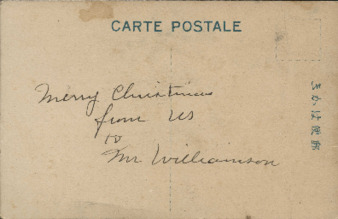 CARTE POSTALE
Merry Christmas
from us
to
Mr Williamson
きかは便郵